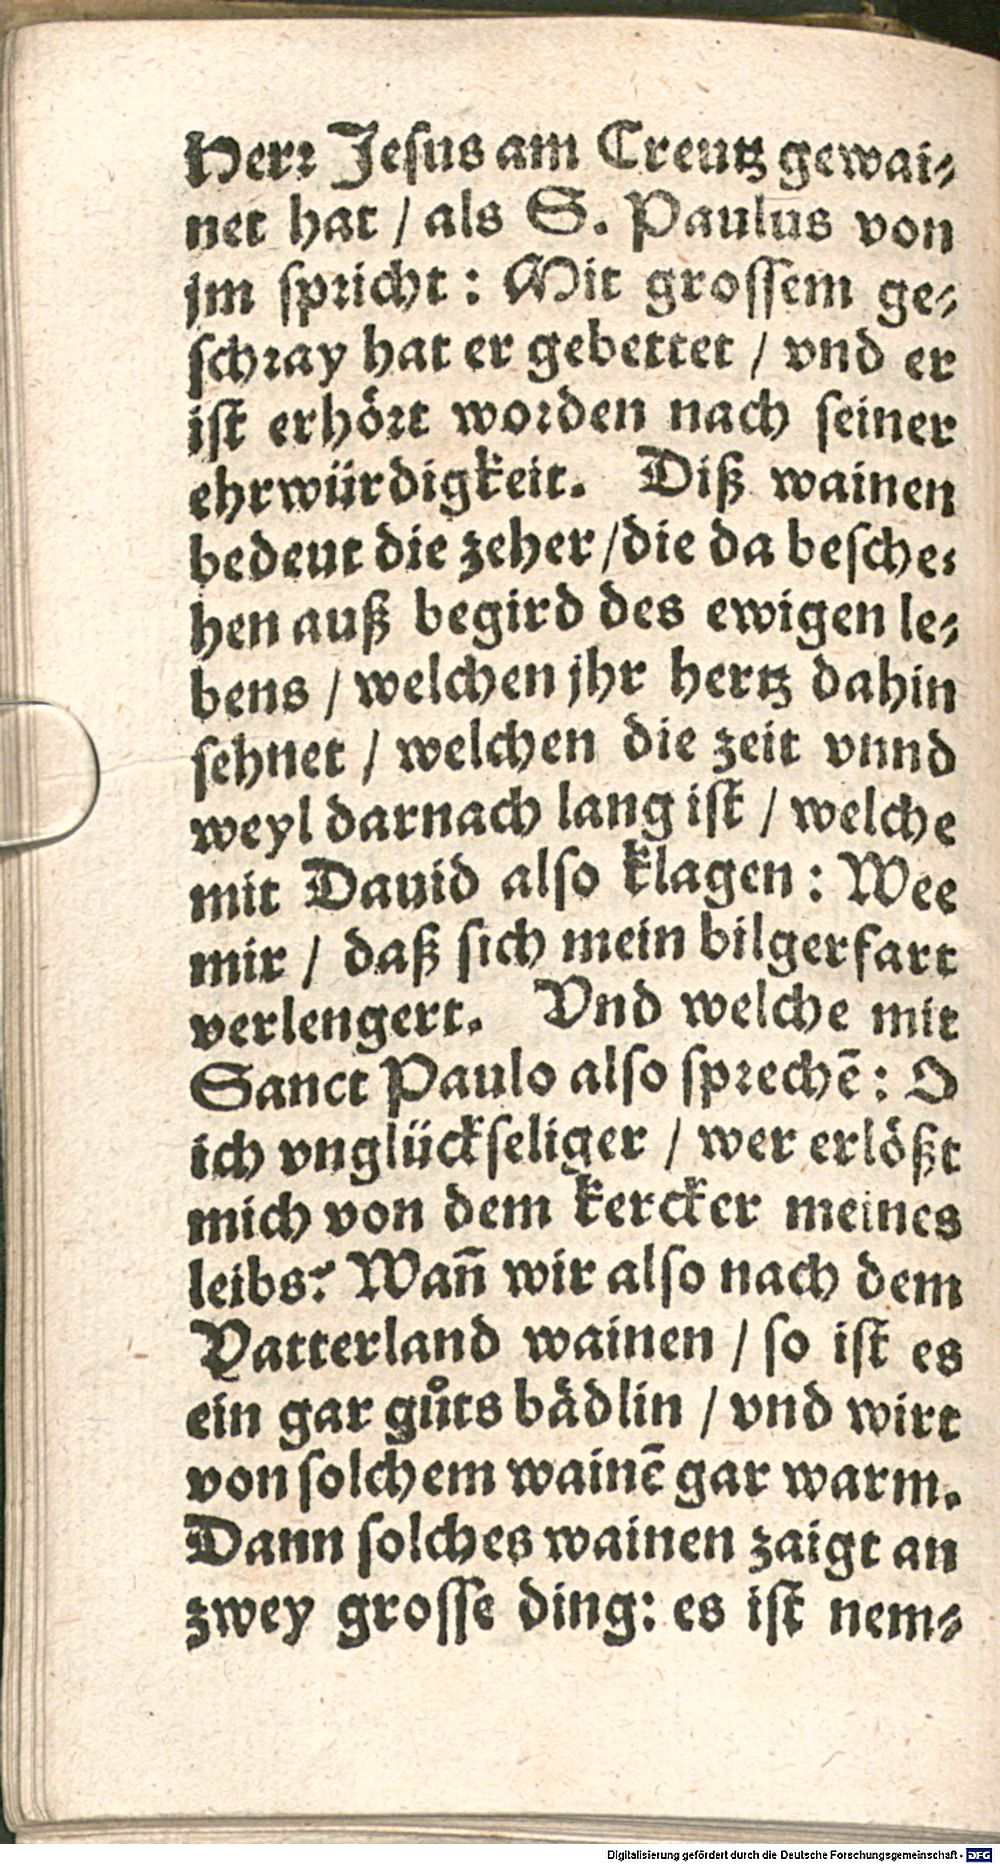 Herr Jesus am Creutz gewai-
net hat / als S. Paulus von
jm spricht : Mit grossem ge-
schray hat er gebettet / vnd er
ist erhört worden nach seiner
ehrwürdigkeit. Diß wainen
bedeut die zeher / die da besche-
hen auß begird des ewigen le-
bens / welchen jhr hertz dahin
sehnet / welchen die zeit vnnd
weyl darnach lang ist / welche
mit Dauid also klagen : Wee
mir / daß sich mein bilgerfart
verlengert. Vnd welche mit
Sanct Paulo also sprechē : O
ich vnglückseliger / wer erlößt
mich von dem kercker meines
leibs? Wañ wir also nach dem
Vatterland wainen / so ist es
ein gar gůts bädlin / vnd wirt
von solchem wainē gar warm.
Dann solches wainen zaigt an
zwey grosse ding: es ist nem-
Digitalisierung gefördert durch die Deutsche Forschungsgemeinschaft - DFG